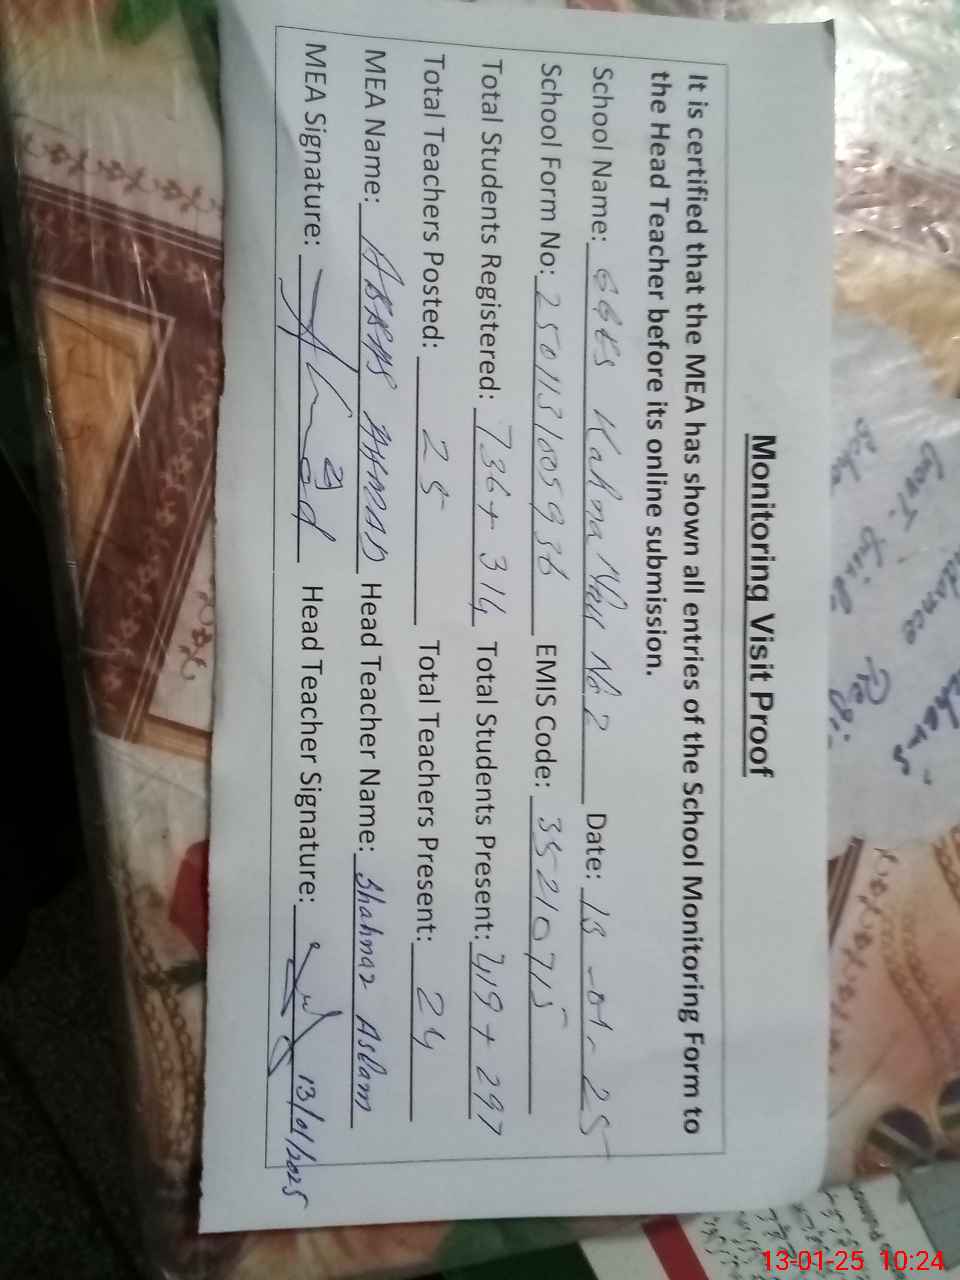 Monitoring Visit Proof
It is certified that the MEA has shown all entries of the School Monitoring Form to
the Head Teacher before its online submission.
School Name: GGES Kahna Nau No 2 Date: 13-01-25
School Form No: 2501131005936 EMIS Code: 35210715
Total Students Registered: 736+314 Total Students Present: 419+297
Total Teachers Posted: 25 Total Teachers Present: 24
MEA Name: ABRAR AHMAD Head Teacher Name: Shahnaz Aslam
MEA Signature: Head Teacher Signature: 13/01/2025
Govt. Girls
13-01-25 10:24